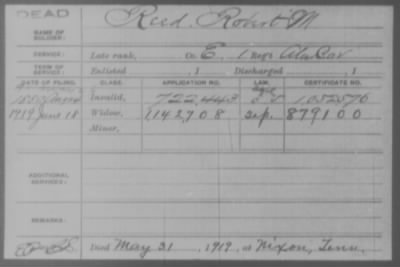 DEAD
NAME OF SOLDIER: Reed, Robert M
SERVICE: Late rank, Co. E, 1 Reg't Ala Cav
TERM OF SERVICE: Enlisted , 1 Discharged , 1
DATE OF FILING. CLASS. APPLICATION NO. LAW. CERTIFICATE NO.
Invalid, 722,443 1052576
1919 June 18 Widow, 1142708 sep. 879100
Minor,
ADDITIONAL SERVICES:
REMARKS:
Died May 31, 1919, at Nixon, Tenn.